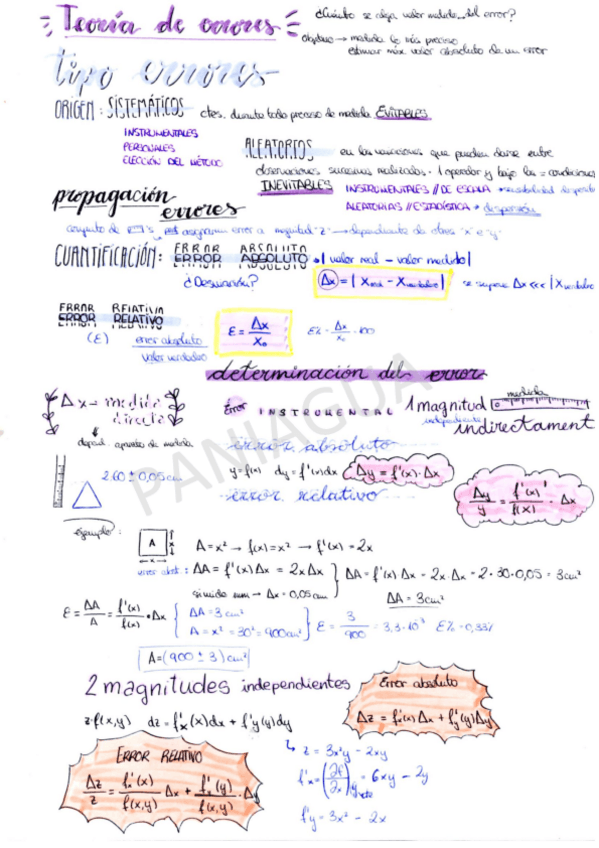 Teoría de errores
¿Cuánto se aleja valor medido... del error?
objetivo → medida lo más preciso
estimar máx. valor absoluto de un error
tipo errores
ORIGEN: SISTEMÁTICOS ctes. durante todo proceso de medida EVITABLES
INSTRUMENTALES
PERSONALES
ELECCIÓN DEL MÉTODO
ALEATORIOS en las variaciones que pueden darse entre
observaciones sucesivas realizadas · 1 operador y bajo las = condiciones
INEVITABLES INSTRUMENTALES // DE ESCALA
ALEATORIAS // ESTADÍSTICA * dispersión
propagación errores
conjunto de asignan error a magnitud "z" → dependiente de otras "x" e "y"
CUANTIFICACIÓN: ERROR ABSOLUTO • | valor real - valor medido |
¿Desviación? Δx = | Xreal - Xverdadero | se supone Δx <<< | Xverdadero
ERROR RELATIVO
(ε) error absoluto / valor verdadero
ε = Δx / X₀
ε% = Δx / X₀ · 100
determinación del error
Δx → medida directa
depend. aparato de medida
2.60 ± 0,05 cm
Error INSTRUMENTAL 1 magnitud medida
independiente indirectament
error absoluto
y = f(x) dy = f'(x)dx Δy = f'(x) · Δx
error relativo
Δy / y = f'(x) / f(x) · Δx
ejemplo:
A x
x
A = x² → f(x) = x² → f'(x) = 2x
error abst: ΔA = f'(x) Δx = 2x Δx
si mido con → Δx = 0,05 cm
ΔA = f'(x) Δx = 2x · Δx = 2 · 30 · 0,05 = 3 cm²
ΔA = 3 cm²
ε = ΔA / A = f'(x) / f(x) · Δx
ΔA = 3 cm²
A = x² = 30² = 900 cm²
ε = 3 / 900 = 3,3 · 10⁻³ ε% = 0,33%
A = (900 ± 3) cm²
2 magnitudes independientes
Error absoluto
Δz = f'x(x) Δx + f'y(y) Δy
z = f(x,y) dz = f'x(x)dx + f'y(y)dy
ERROR RELATIVO
Δz / z = f'x(x) / f(x,y) Δx + f'x(y) / f(x,y) · Δy
↳ z = 3x²y - 2xy
f'x = (∂f / ∂x) y cte = 6xy - 2y
f'y = 3x² - 2x
PANIAGUA